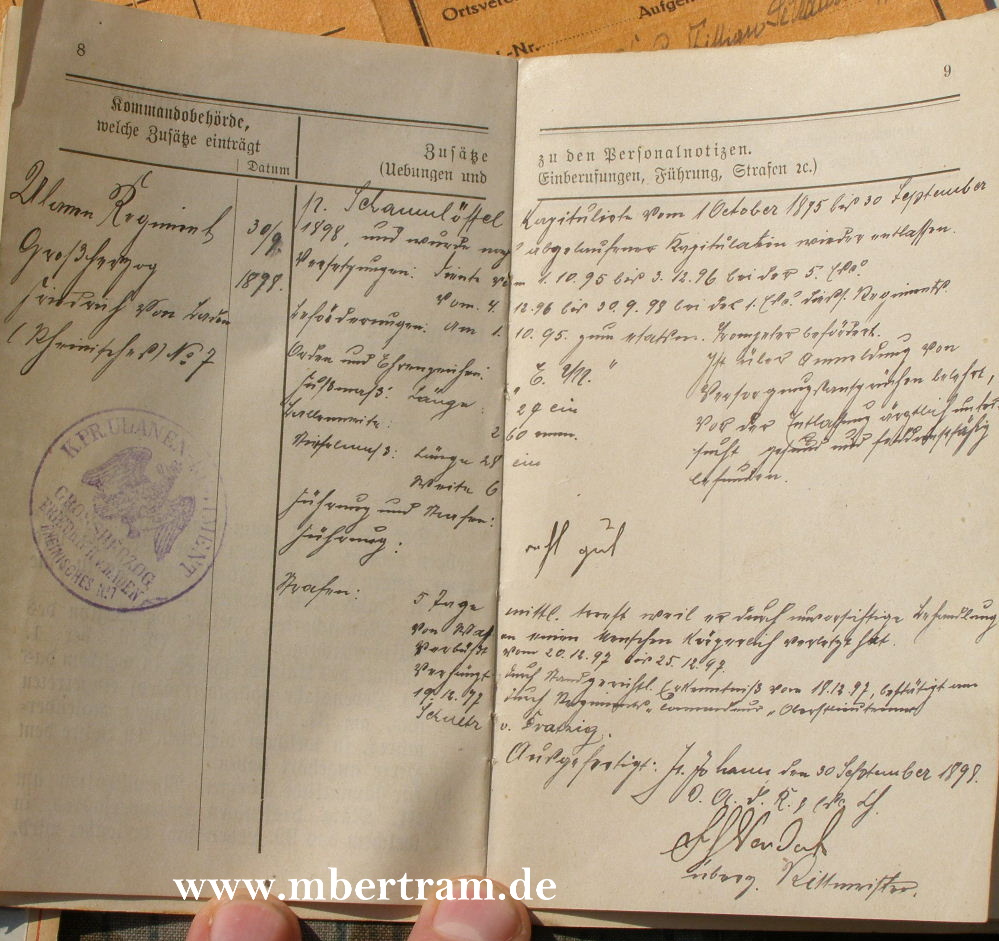 Ortsverein
Aufgen
-Nr.
8
Kommandobehörde,
welche Zusätze einträgt
Datum
Zusätze
(Uebungen und
Ulanen Regiment
Großherzog
Friedrich von Baden
(Rheinisches) No 7
30/9.
1898.
K. PR. ULANEN-REGIMENT
GROSSHERZOG
FRIEDR. V. BADEN
RHEINISCHES No. 7
9
zu den Personalnotizen.
Einberufungen, Führung, Strafen ꝛc.)
p. Schaumlöffel Kapitulirte vom 1 October 1895 bis 30 September
1898, und wurde nach abgelaufener Kapitulation wieder entlassen.
Versetzungen: Diente vom 1. 10. 95 bis 3. 12. 96 bei der 5. Esc.
vom 4. 12. 96 bis 30. 9. 98 bei der 1. Esc. dieß. Regiments.
Beförderungen: Am 1. 10. 95. zum etatsm. Trompeter befördert.
Orden und Ehrenzeichen:
Fußmaß: Länge: 29 cm
Ballenweite: 2 60 mm.
Stiefelmaß: Länge 28 cm
Weite 6
Ist über Anmeldung von
Versorgungsansprüchen belehrt,
vor der Entlassung ärztlich unter-
sucht, gesund und felddienstfähig
befunden.
Führung und Strafen:
Führung: recht gut
Strafen: 5 Tage mittl. Arrest weil er durch unvorsichtige Behandlung
von Waffen einen Menschen körperlich verletzt hat.
Verbüßt vom 20. 12. 97 bis 25. 12. 97.
Verhängt durch Standgerichtl. Erkenntniß vom 18. 12. 97, bestätigt am
19. 12. 97 durch Regiments-Commandeur Oberstlieutenant
v.
Ausgefertigt: St. Johann den 30 September 1898.
Rittmeister.
www.mbertram.de